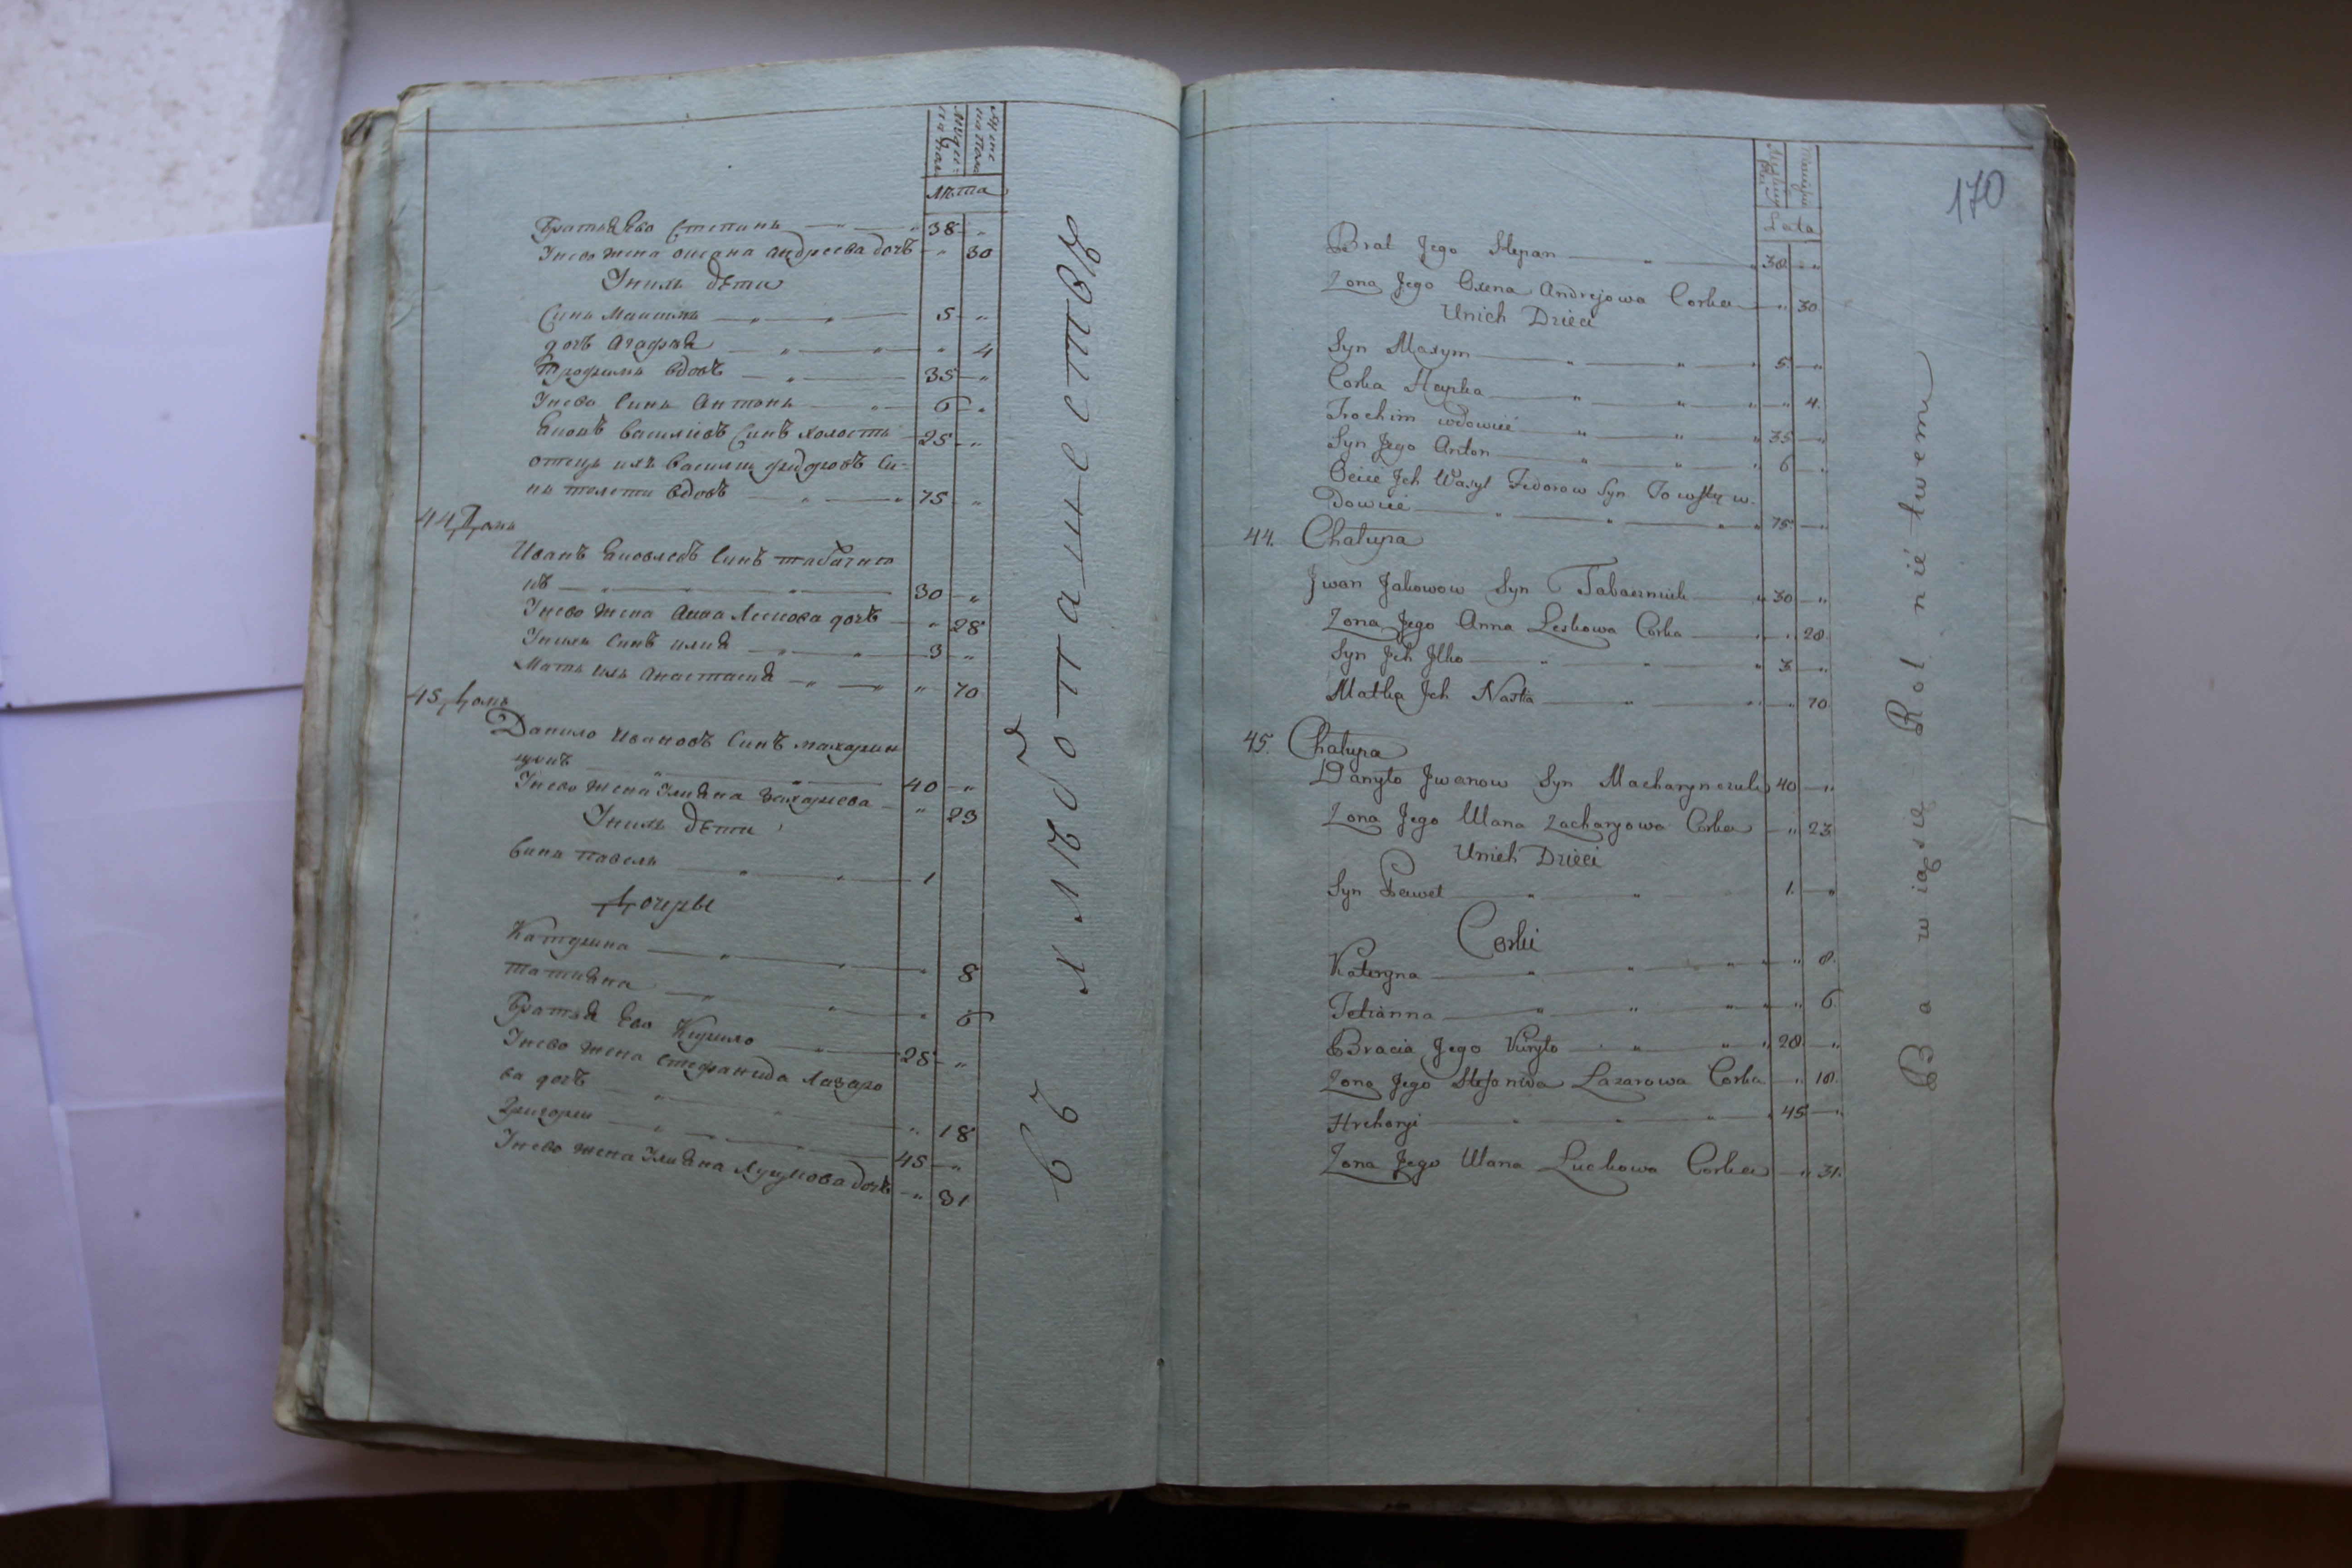 Мужеска пола
Женска пола
Лѣта
Братья Ево Степанъ — „ — „ 38 „
Унево жена оксана андреева дочь „ 30
Унихъ дѣти
Синъ Максимъ — „ — „ — 5 „
дочь Агафия — „ — „ — „ 4
Трофимъ вдовъ — „ — 35 „
Унево Синъ Антонъ — „ — 6 „
Яковъ Василіевъ Синъ холостъ 25 „
отецъ ихъ Василий фидоровъ Си-
нъ толсти вдовъ — „ — „ 75 „
44 Домъ
Иванъ Яковлевъ Синъ табачни
къ — „ — „ — „ — 30 „
Унево жена Анна Лескова дочь „ 28
Унихъ Синъ илия — „ — „ — 3 „
Мать ихъ Анастасия — „ — „ „ 70
45 Домъ
Данило Ивановъ Синъ махарин
чукъ — „ — „ — 40 „
Унево жена Улияна Захариева — „ 23
Унихъ дѣти
Синъ павелъ — „ — „ — 1
Дочеры
Катерина — „ — „ — „ 8
татияна — „ — „ — „ 6
Братья Ево Кирило — „ — 28 „
Унево жена Стефанида Лазаро
ва дочь — „ — „ — „ 18
Григорий — „ — „ — 45 „
Унево жена Улияна Луцкова дочь — „ 31
въ хлѣбопашествѣ
170
Lata
Brat Jego Stepan — „ — „ 38 „
Zona Jego Oxena Andrejowa Corka „ 30
Unich Dzieci
Syn Maxym — „ — „ — „ 5 „
Corka Hapka — „ — „ — „ „ 4.
Trochim wdowiec „ — „ — „ 35 „
Syn Jego Anton „ — „ — „ 6 „
Ociec Jch Wasyl Fedorow Syn Towsty w.
Dowiec — „ — „ — „ „ 75 „
44. Chałupa
Jwan Jakowow Syn Tabacznik — „ 30 „
Zona Jego Anna Leskowa Corka — „ „ 28.
Syn Jch Jlko — „ — „ — „ 3 „
Matka Jch Nastia — „ — „ „ 70
45. Chałupa
Danyło Jwanow Syn Macharynczuk 40 „
Zona Jego Ulana Zacharyowa Corka „ 23
Unich Dzieci
Syn Paweł — „ — „ — 1. „
Corki
Kateryna — „ — „ — „ „ 8.
Tetianna — „ — „ — „ „ 6.
Bracia Jego Kiryło — „ — „ „ 28 „
Zona Jego Stefanida Łazarowa Corka — „ 18.
Hrehoryi — „ — „ — „ „ 45 „
Zona Jego Ulana Luckowa Corka — „ 31.
Bawią się Rolnictwem